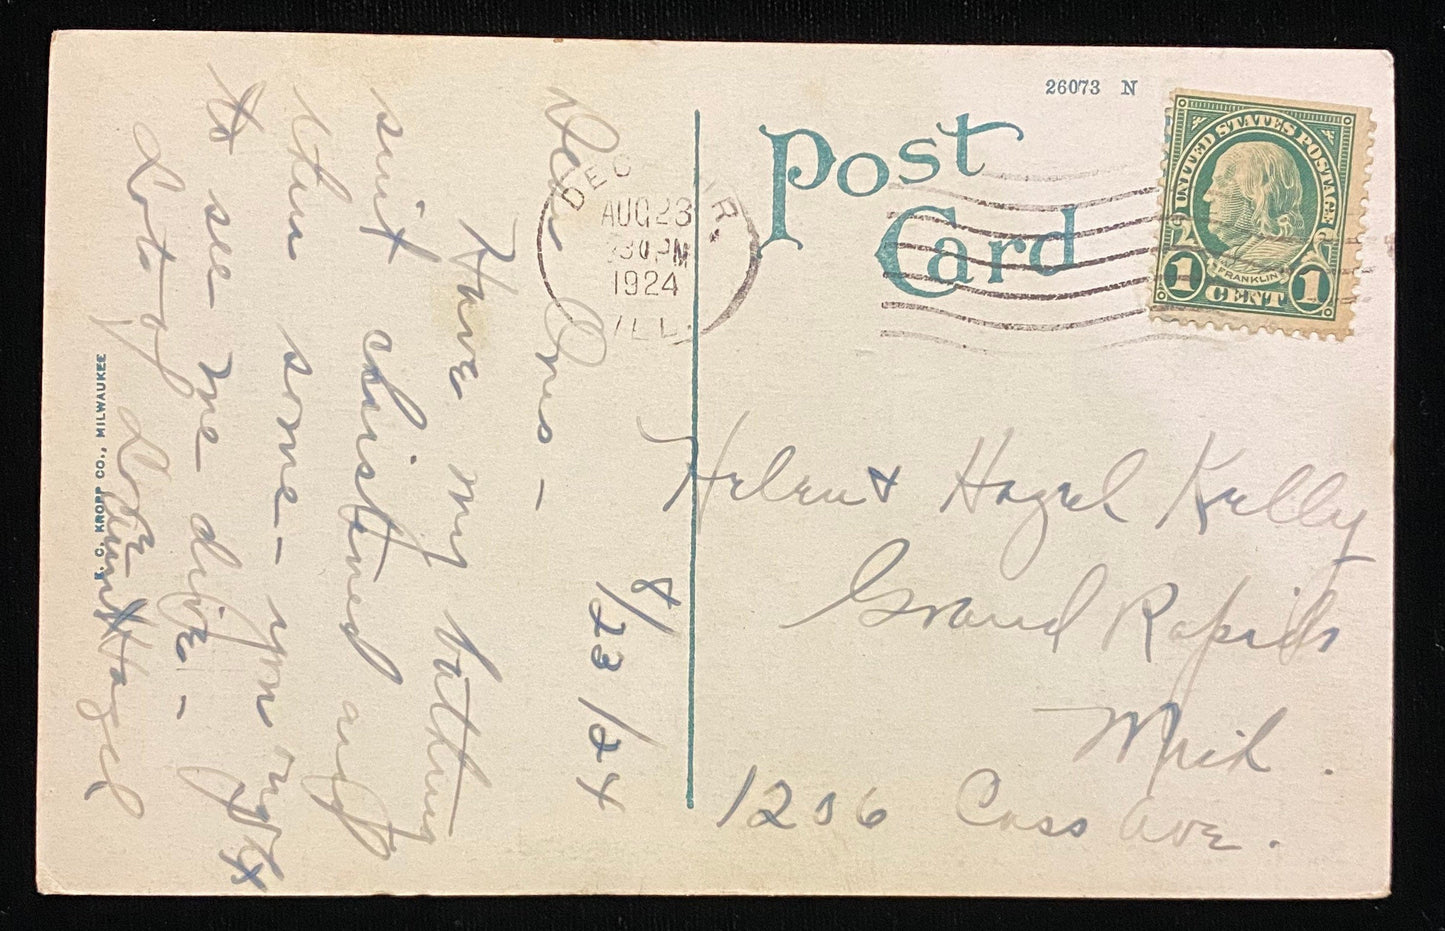 26073 N
Post
Card
UNITED STATES POSTAGE
FRANKLIN
1 CENT 1
DEC R.
AUG 23
30 PM
1924
ILL.
8/23/24
Dear Ones –
Have my bathing
suit christened and
then some – you ought
to see me dive –
Lots of Love
Aunt Hazel
Helen & Hazel Kelly
Grand Rapids
Mich.
1206 Cass Ave.
E. C. KROPP CO., MILWAUKEE